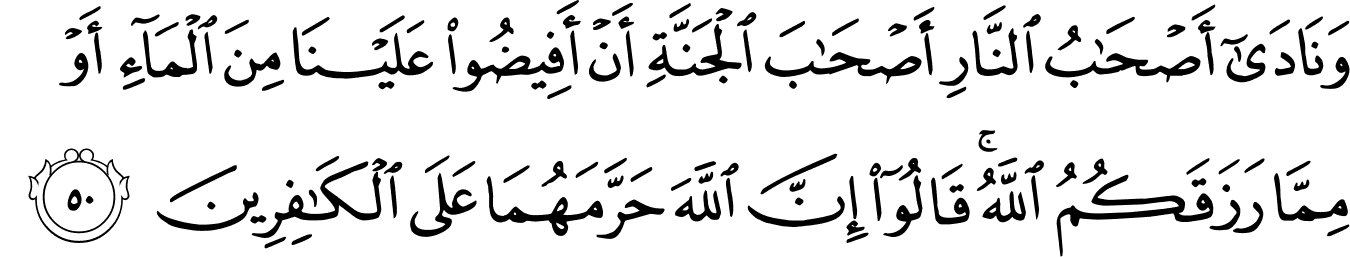 وَنَادَىٰٓ أَصْحَـٰبُ ٱلنَّارِ أَصْحَـٰبَ ٱلْجَنَّةِ أَنْ أَفِيضُوا۟ عَلَيْنَا مِنَ ٱلْمَآءِ أَوْ
مِمَّا رَزَقَكُمُ ٱللَّهُ ۚ قَالُوٓا۟ إِنَّ ٱللَّهَ حَرَّمَهُمَا عَلَى ٱلْكَـٰفِرِينَ ٥٠